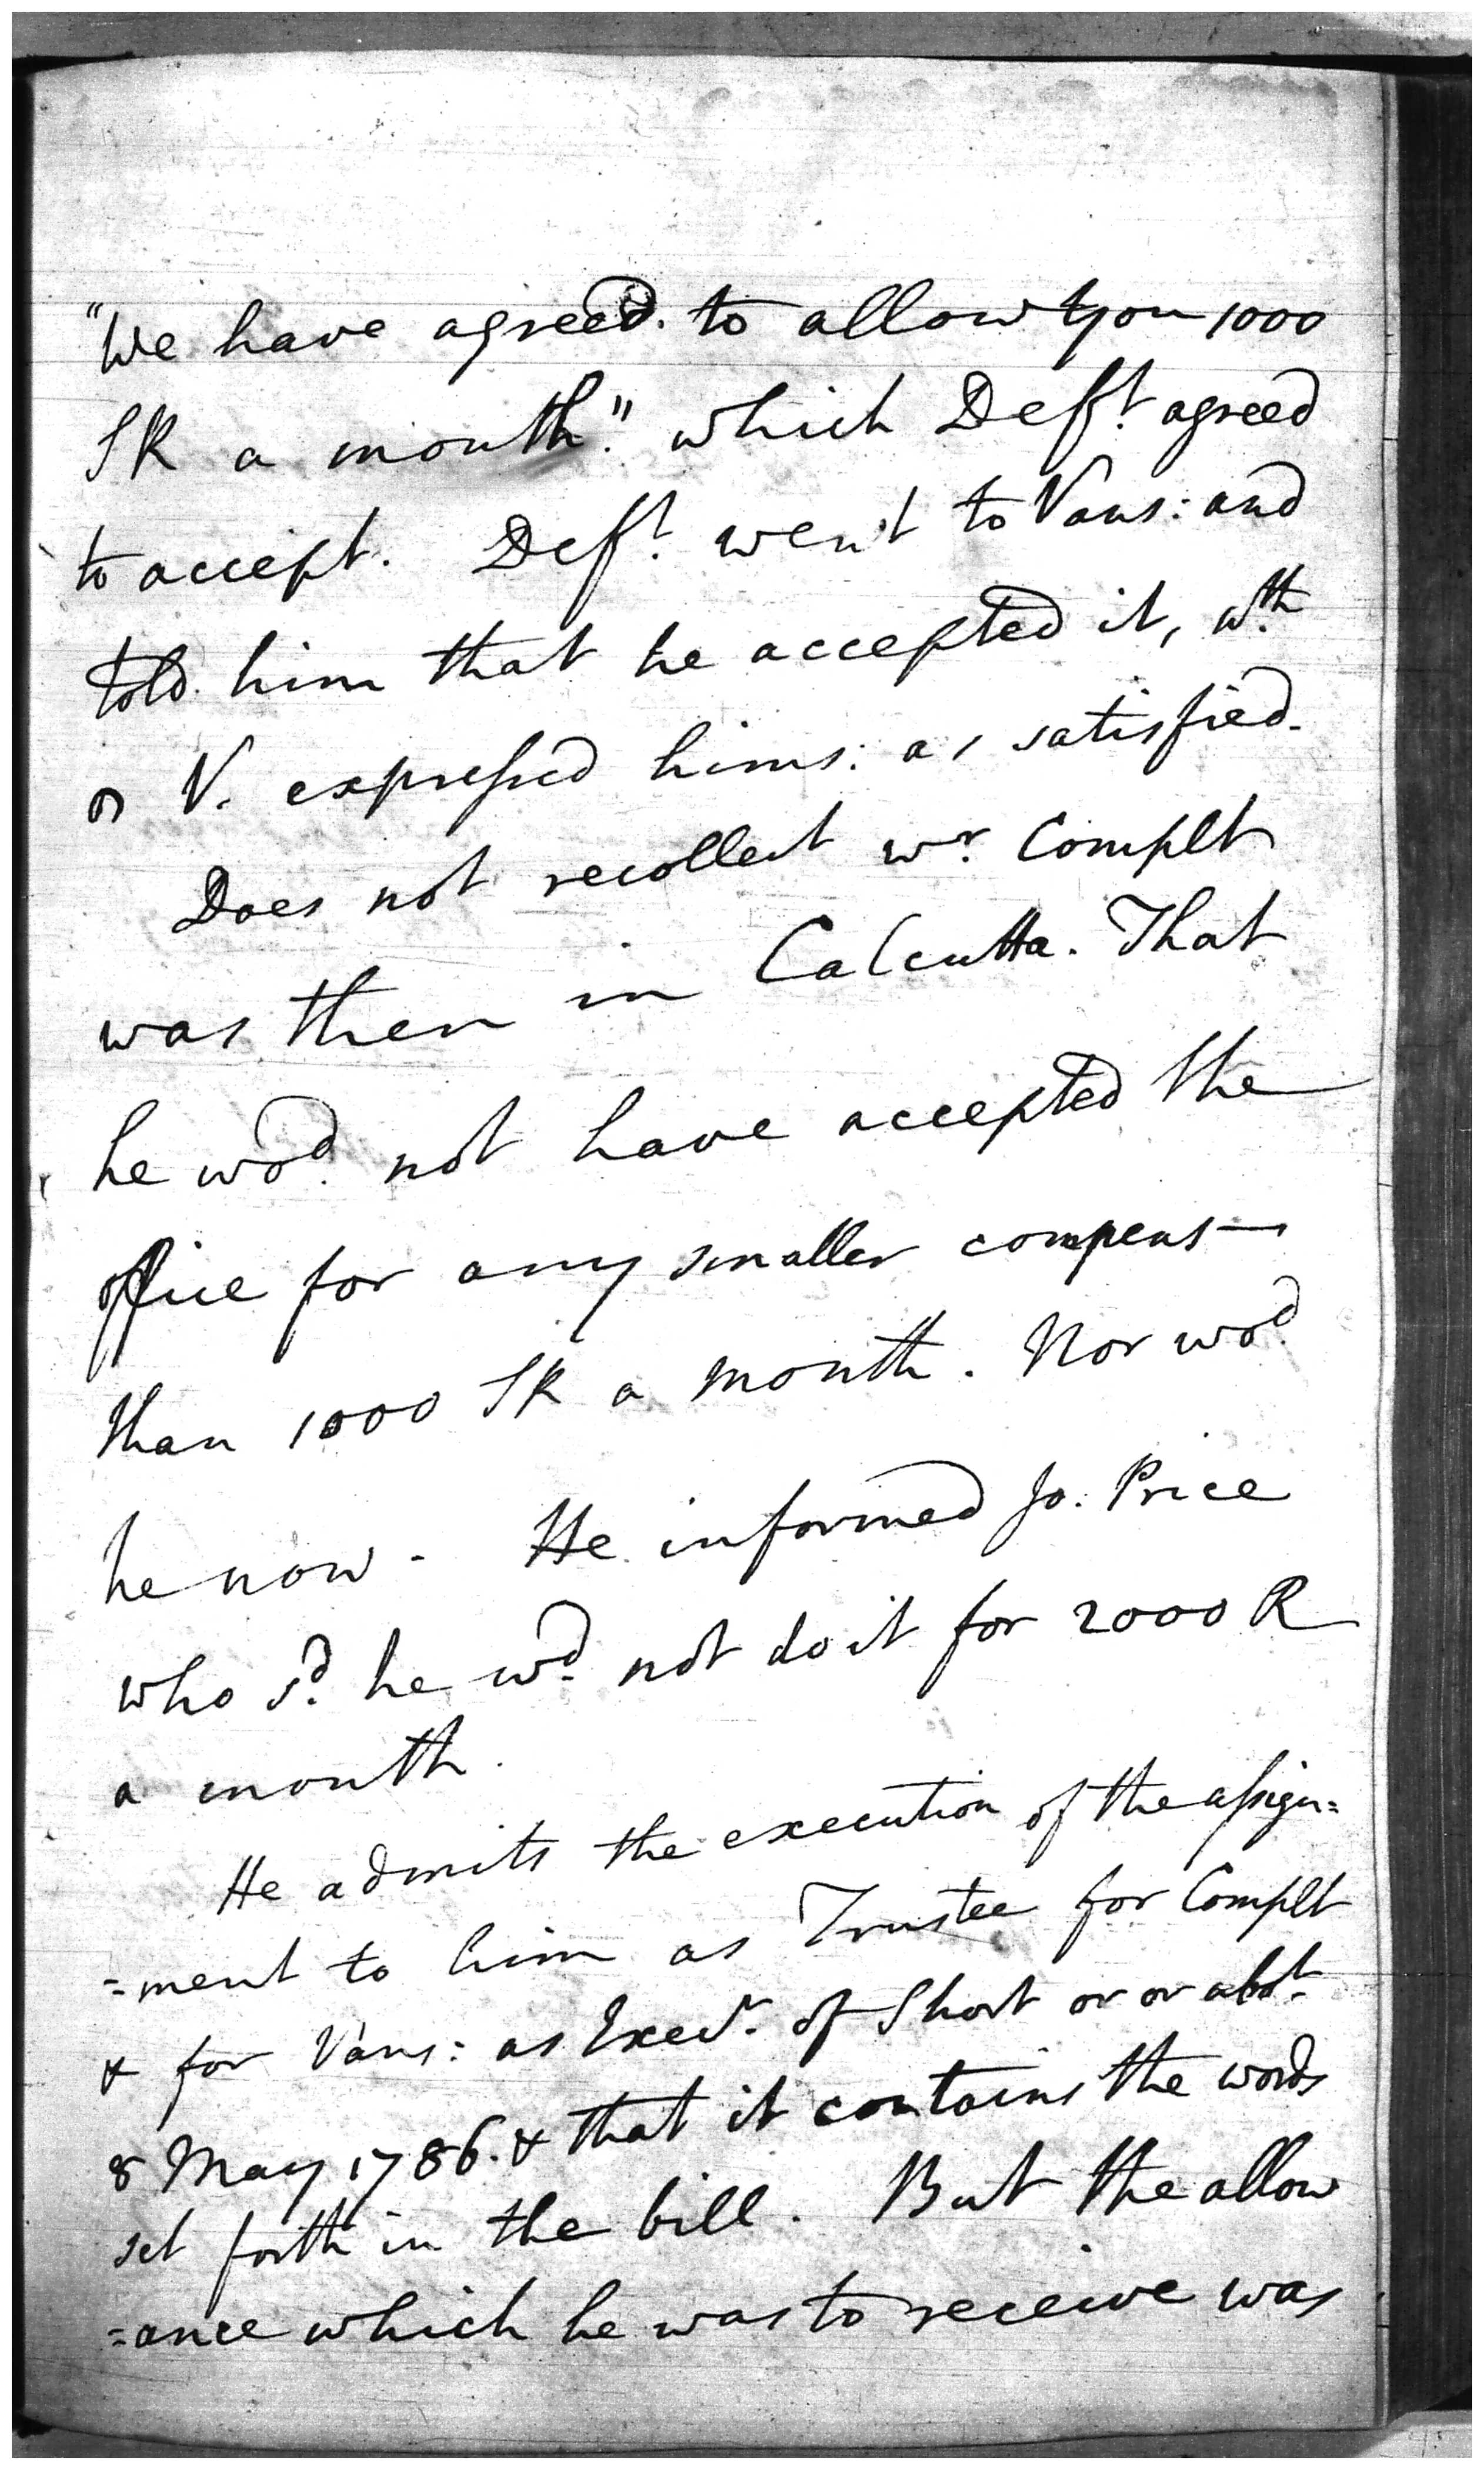 "We have agreed. to allow you 1000
SR a month." which Deft. agreed
to accept. Deft. went to Vans: and
told him that he accepted it, wth.
V. expressed hims: as satisfied.
Does not recollect wr. Complt
was then in Calcutta. That
he wod. not have accepted the
office for any smaller compens—
than 1000 SR a month. Nor wod.
he now - He informed Jo. Price
who sd. he wd. not do it for 2000 R
a month.
He admits the execution of the assign=
=ment to him as Trustee for Complt
& for Vans: as Execr. of Short on or abot.
8 May 1786. & that it contains the words
set forth in the bill. But the allow
=ance which he was to receive was